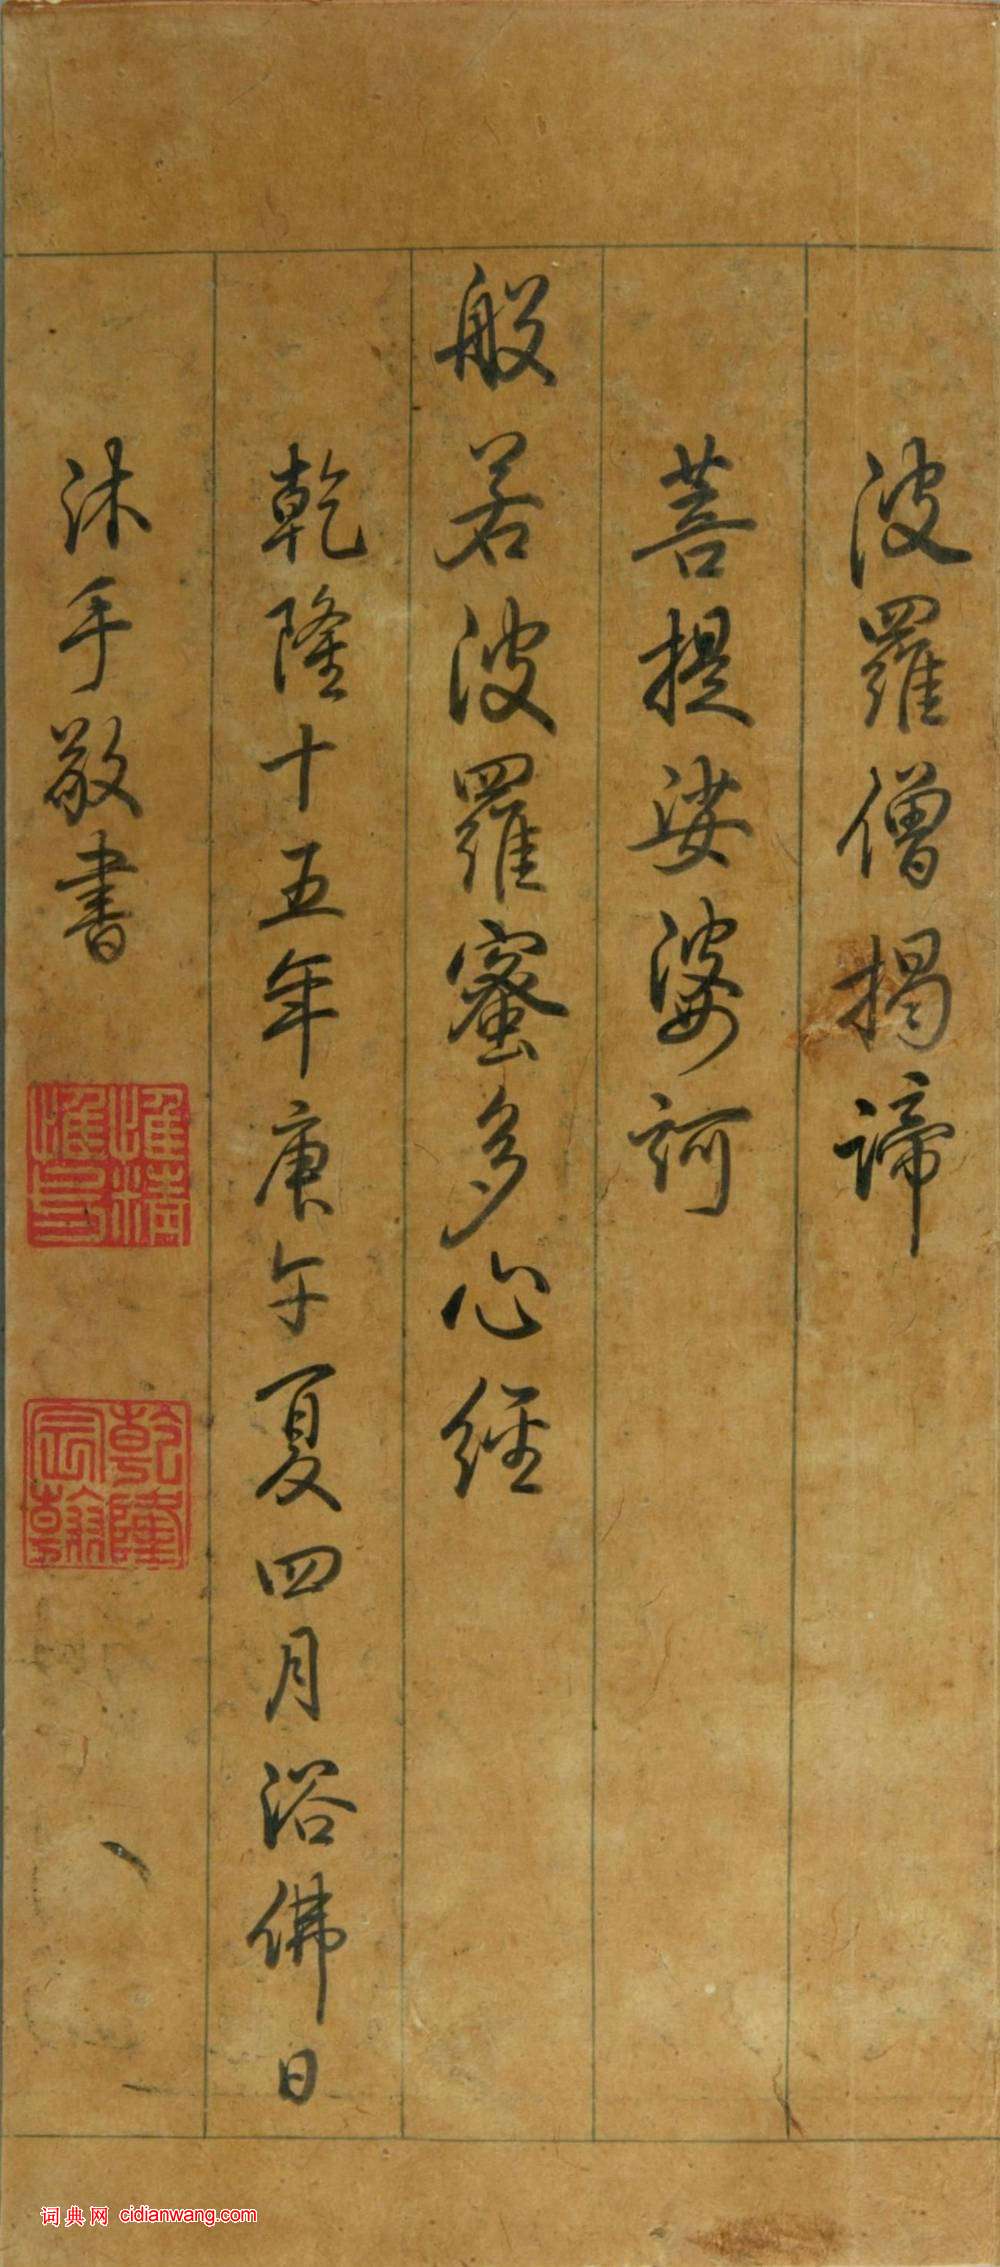 波羅僧揭諦
菩提娑婆訶
般若波羅蜜多心經
乾隆十五年庚午夏四月浴佛日
沐手敬書
惟精惟一
乾隆宸翰
词典网 cidianwang.com